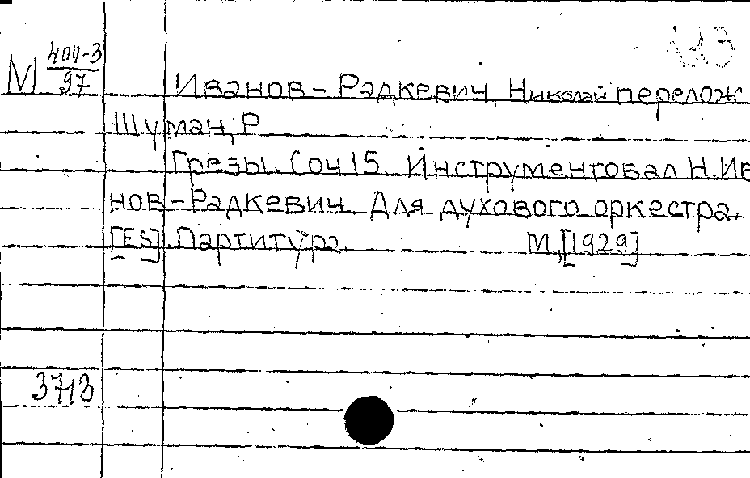 113
М 404-3
97
Иванов-Радкевич, Николай перелож
Шуман, Р
Грезы. Соч 15. Инструментовал Н. Ив
нов-Радкевич. Для духового оркестра.
[ES]. Партитура. М, [1929]
3713